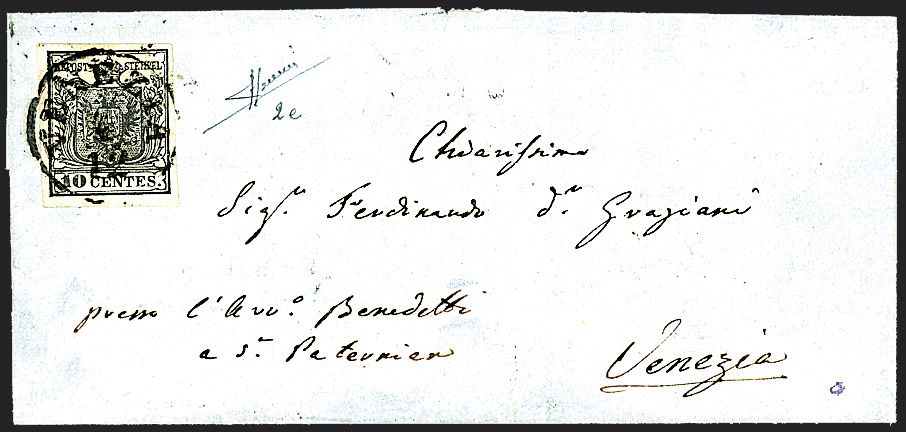 KKPOST-STEMPEL
VENEZIA
12
10 CENTES.
2e
Chiarissimo
Sigr. Ferdinando Dn. Graziani
presso l'Avvo. Benedetti
a Sn. Paternian
Venezia